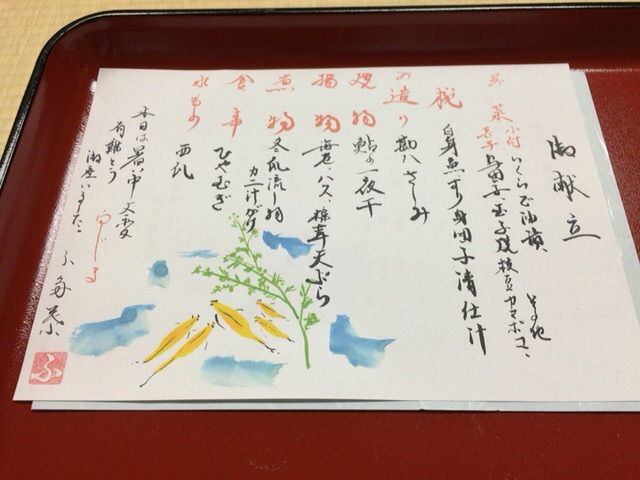 御献立
前菜 小付 いくら正油漬 その他
玉子 玉子焼 枝豆 カマボコ
椀 白身魚すり身団子清仕汁
お造り 勘八さしみ
焼物 鮎の一夜干
揚物 海老、ハス、椎茸天ぷら
煮物 冬瓜流し物
カニ汁がけ
食事 ひやむぎ
水もの 西瓜
本日は暑い中大変
有難とう
御座いました。
ふ